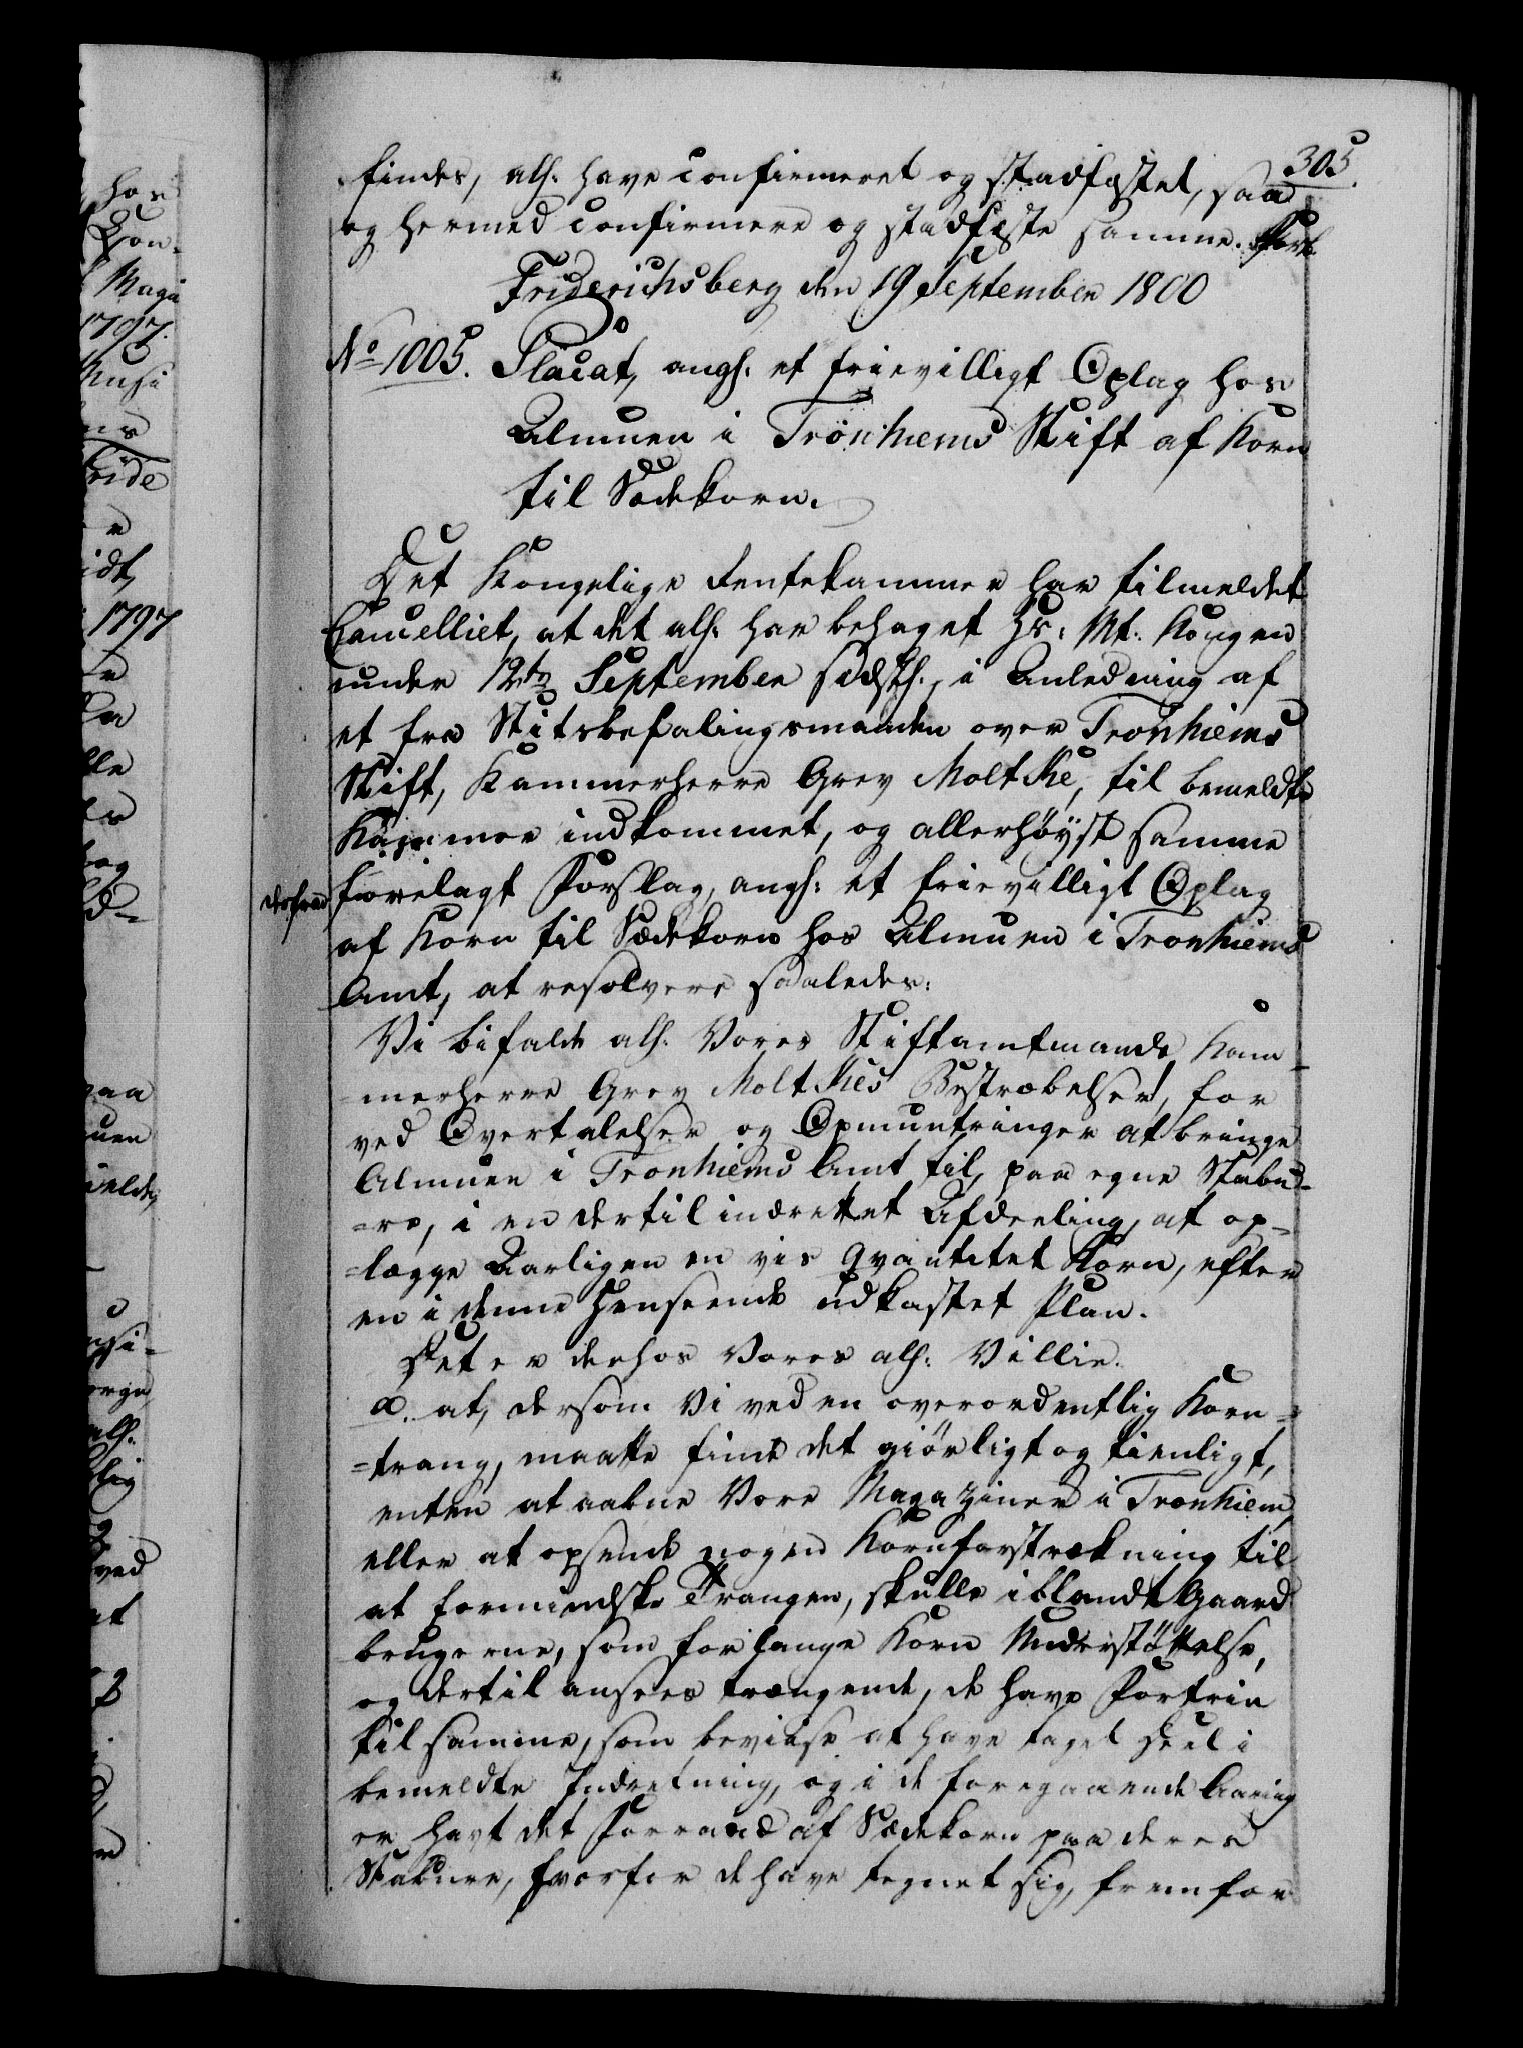 305
findes, alh: have confirmeret og stadfæstet, saa
og hermed confirmere og stadfæste samme. Forb.
Friderichsberg den 19 September 1800
No 1005. Placat, angh: et frievilligt Oplag hos
Almuen i Tronhiems Stift af Korn
til Sædekorn.
Det Kongelige Rentekammer har tilmeldet
Cancelliet, at det alh: har behaget Hs: Mt: Kongen
under 12te September sidsth:, i Anledning af
et fra Stitsbefalingsmanden over Tronhiems
Stift, Kammerherre Grev Moltke, til bemeldte
Kammer indkommet, og allerhøyst samme
forelagt Forslag, angh: et frievilligt Oplag
af Korn til Sædekorn hos Almuen i Tronhiems
Amt, at resolvere saaledes:
Vi bifalde alh: Vores Stiftamtmands, Kam-
merherre Grev Moltkes Bestræbelser, for
ved Overtalelser og Opmuntringer at bringe
Almuen i Tronhiems Amt til, paa egne Stabu-
=re, i en dertil indrettet Afdeeling, at op-
=lægge Aarligen en vis Qvantitet Korn, efter
en i denne Henseende udkastet Plan.
Det er derhos Vores alh: Villie.
a. at, dersom Vi ved en overordentlig Korn=
=trang, maatte finde det giørligt og tienligt,
enten at aabne Vore Magaziner i Tronhiem,
eller at opsende nogen Kornforstrækning til
at formindske Trangen, skulle iblandt Gaard
brugerne, som forlange Korn Understøttelse,
og dertil ansees trængende, de have Fortrin
til samme, som beviise at have taget Deel i
bemeldte Indretning, og i de foregaaende Aaring
er havt det Forraad af Sædekorn paa deres
Stabure, hvorfor de have tegnet sig, fremfor